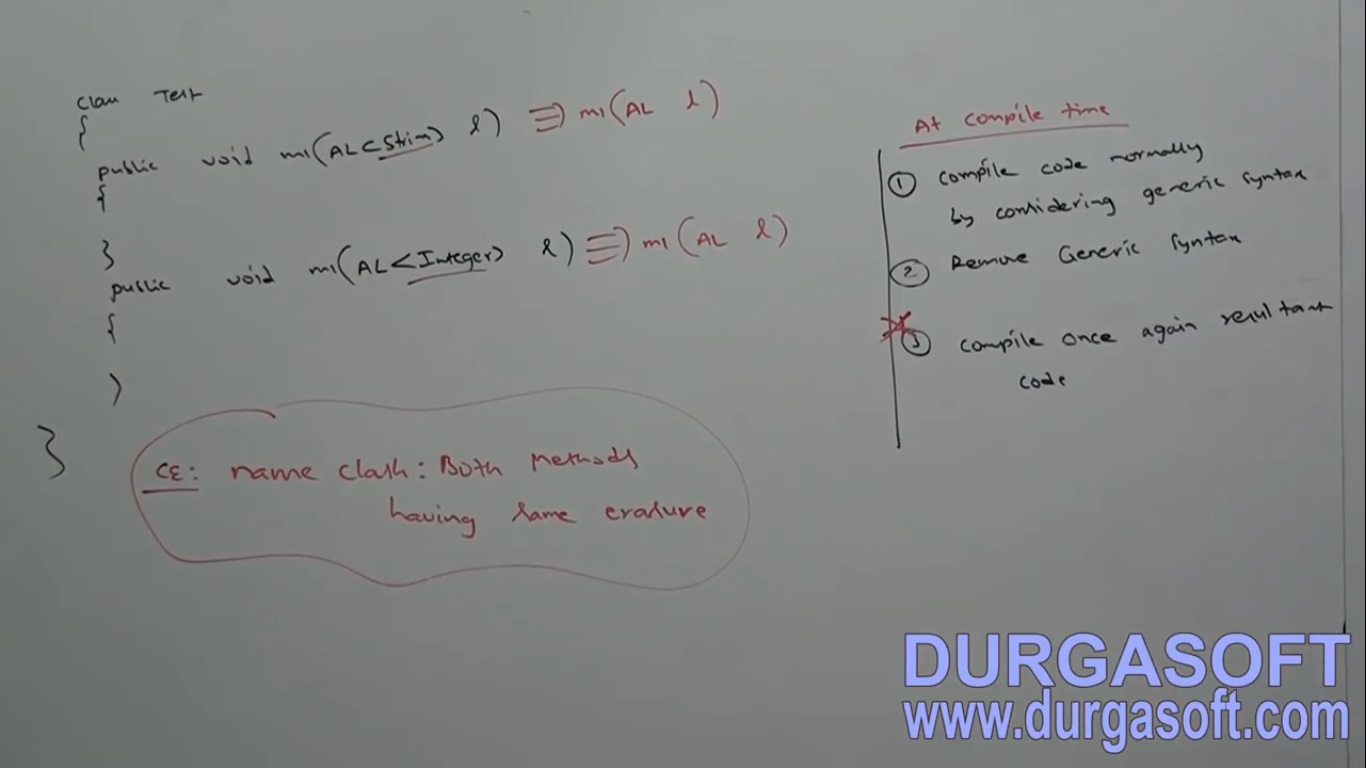 class Test
{
public void m1(AL<String> l) ≡ m1(AL l)
{
}
public void m1(AL<Integer> l) ≡ m1(AL l)
{
}
}
CE: name clash: Both Methods
having same erasure
At compile time
① compile code normally
by considering generic syntax
② Remove Generic syntax
③ compile once again resultant
code
DURGASOFT
www.durgasoft.com